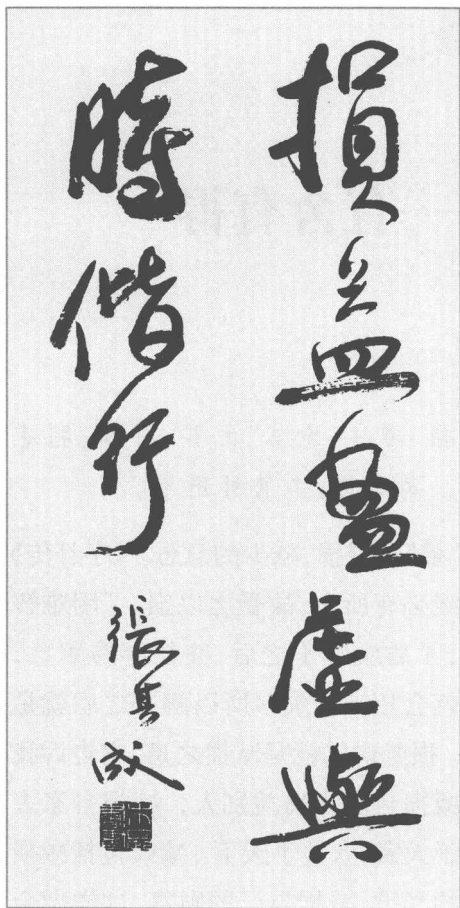 損益盈虛與
時偕行
張其成